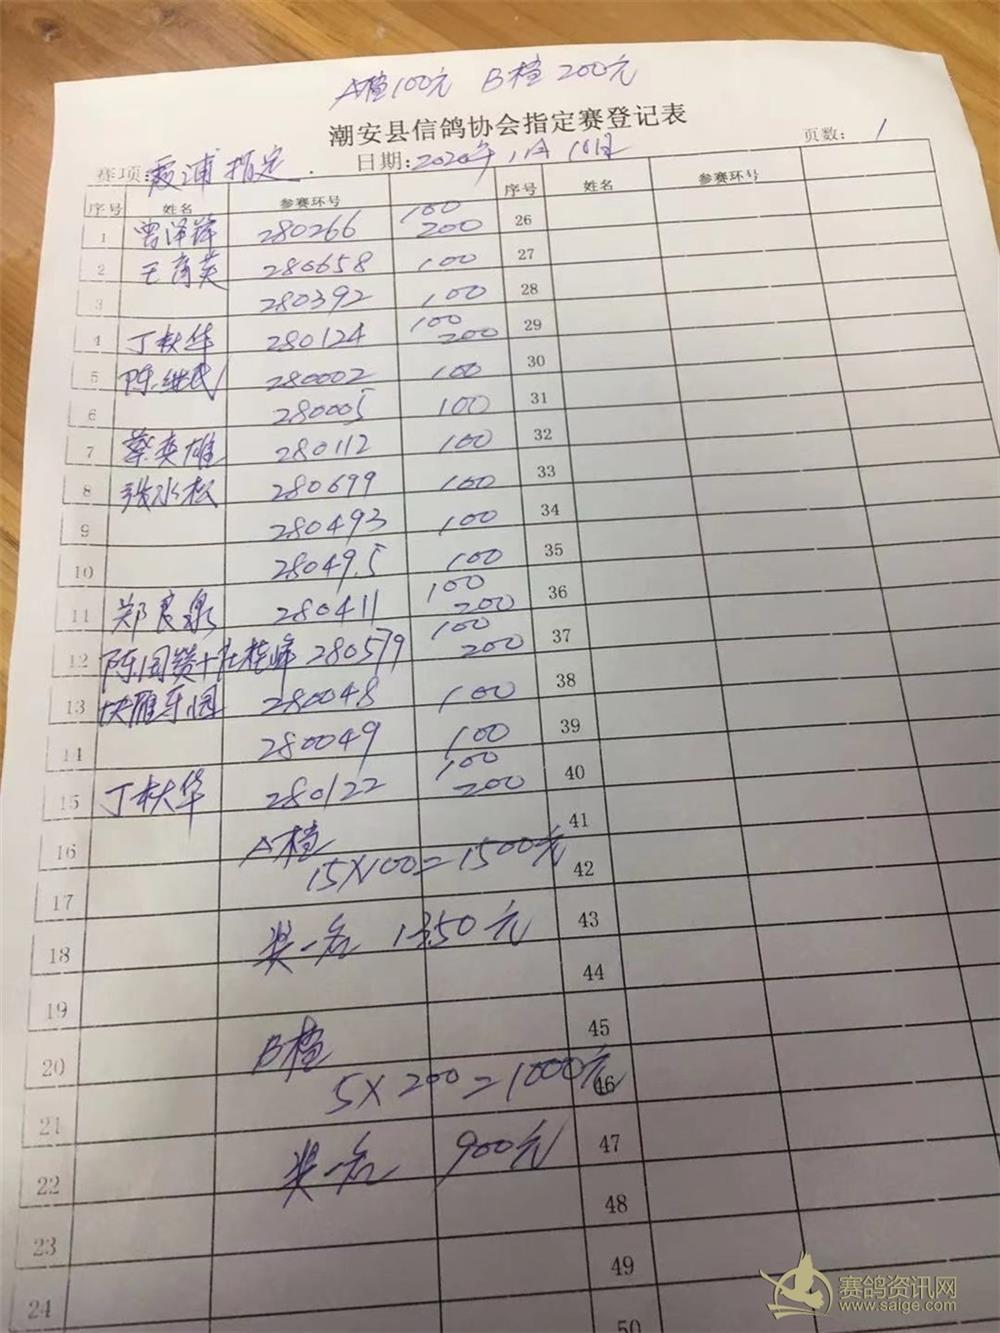 A档100元 B档200元
潮安县信鸽协会指定赛登记表
赛项: 霞浦指定. 日期: 2020年11月18日 页数: 1
序号 姓名 参赛环号 序号 姓名 参赛环号
1 曾泽锋 280266 100 200 26
2 王育英 280658 100 27
3 280392 100 28
4 丁秋华 280124 100 200 29
5 陈继武 280002 100 30
6 280005 100 31
7 蔡奕雄 280112 100 32
8 张水松 280699 100 33
9 280493 100 34
10 280495 100 35
11 郑良泉 280411 100 200 36
12 280579 100 200 37
13 280048 100 38
14 280049 100 39
15 丁秋华 280122 100 200 40
16 A档 41
15×100=1500元 42
17
18 奖一名 1350元 43
19 44
20 B档 45
5×200=1000元 46
21
22 奖一名 900元 47
23 48
24 49
50
赛鸽资讯网
www.saige.com